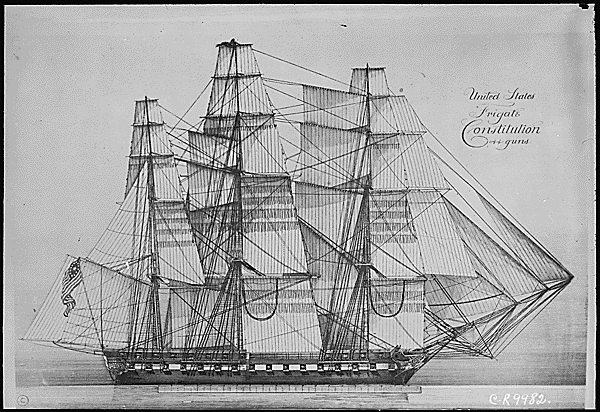 United States
Frigate
Constitution
44 guns.
©
C-R9982.